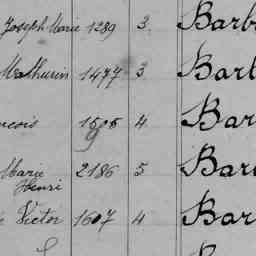 Joseph Marie 1289 3 Barb
Mathurin 1477 3 Barb
ncois 1505 4 Bar
Marie 2186 5 Bar
Henri
Victor 1607 4 Bar